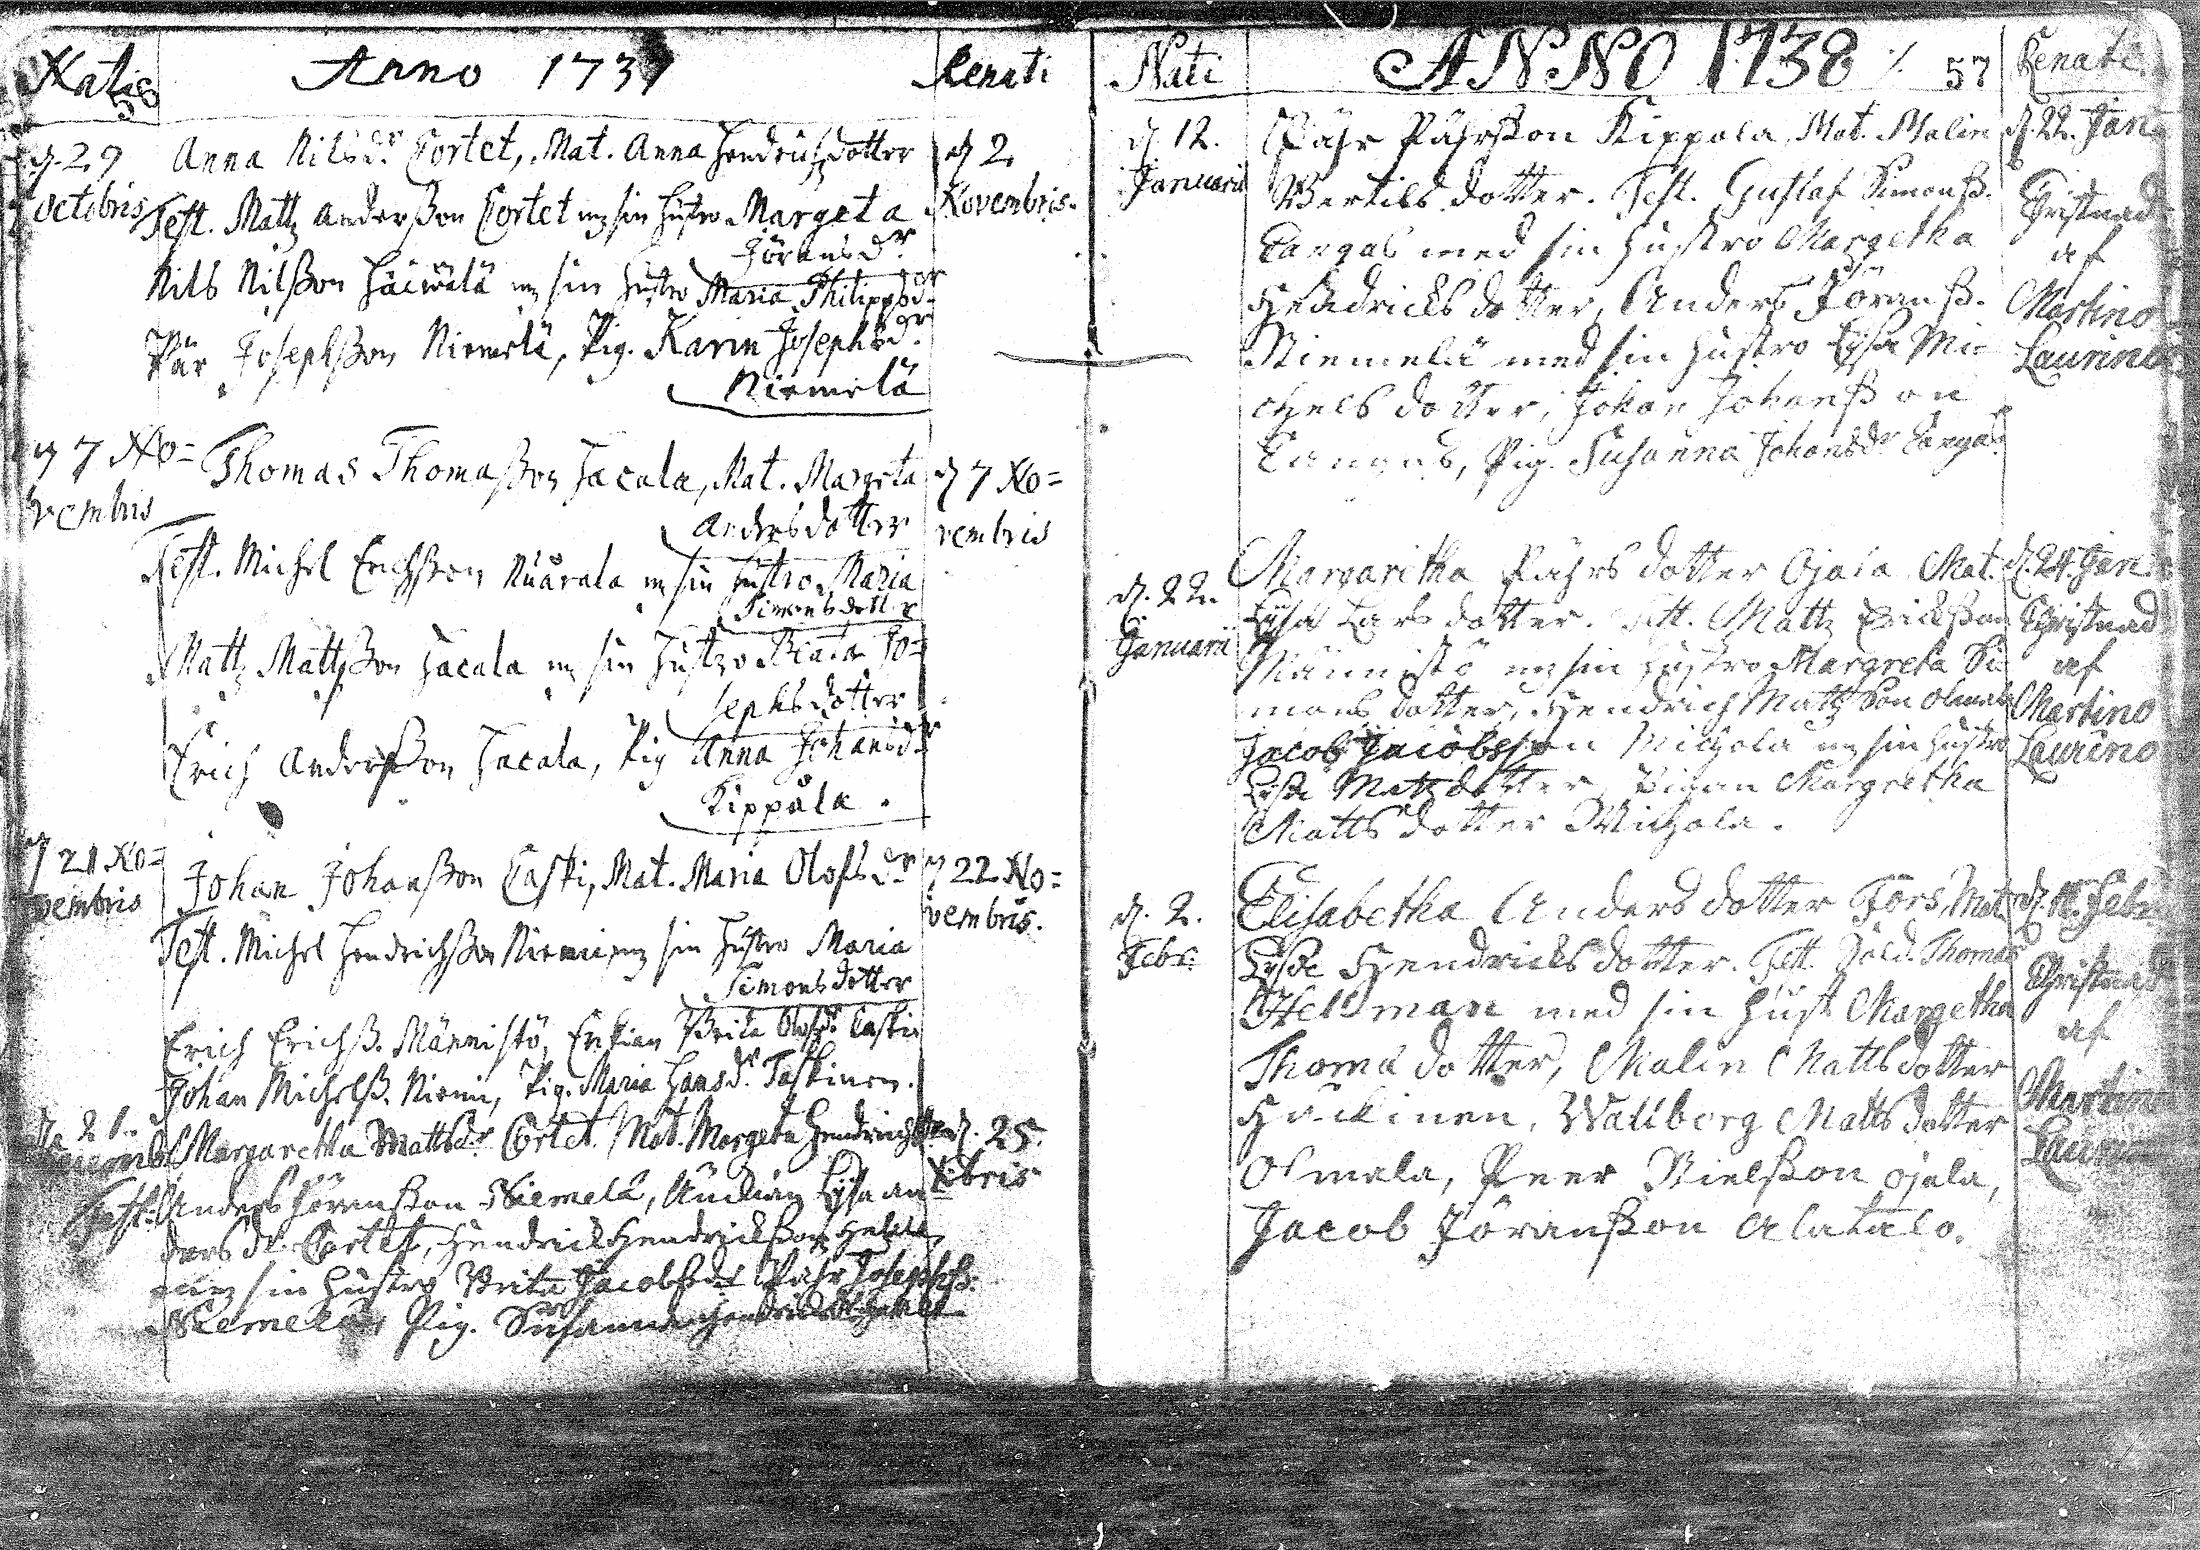 Nati
56
Anno 1737
Renati
d. 29
octobris
Anna Nilsdr Cortet, Mat. Anna Hendrichsdotter
d 2
Novembris.
Test. Mattz Anderßon Cortet m sin hustro Margeta
Jöransdr
Nils Nilßon m sin hustro Maria Philippsdr
Pär Josephßon Niemelä, Pig. Karin Josephsdr
Niemelä
d 7 No=
vembris
Thomas Thomaßon Jacala, Mat. Margeta
Andersdotter
d 7 No=
vembris
Test. Michel Erichßon m sin hustro Maria
Simonsdotter
Mattz Mattzßon Jacala m sin hustro Beata Jo=
sephsdotter
Erich Anderßon Jacala, Pig Anna Johansdr
Kippala.
d 21 No=
vembris
Johan Johanßon Caski, Mat. Maria Olofsdr
d 22 No=
vembris.
Test. Michel Hendrichßon Niemi m sin hustro Maria
Simonsdotter
Erich Erichß. Männistö, Enkian Brita Olofsdr Caski
Johan Michelß. Niemi, Pig. Maria Hansdr Taskinen.
21.
Margaretha Mattsdr Cortet. Mat. Margeta Hendrichsdr
d. 25.
Xbris
Test. Anders Jöranßon Niemelä, Änckian Lijsa An
dersdr Cortet, Hendrick Hendrickßon
m sin hustro Brita Jacobsdr Pähr Josephß.
Niemelä, Pig. Susanna
Nati
ANNO 1738 ./.
57
Renati
d. 12.
Januarii
Pähr Pährßon Kippola, Mat. Malin
Bertils dotter. Test. Gustaf Simonß.
Cangas med sin hustro Margetha
Hendricks dotter, Anders Jöranß.
Niemelä med sin hustro Lijsa Mi
chels dotter, Johan Johanßon
Cangas, Pig. Susanna Johansdr Cangas.
d. 22. Jan
Christnad
af
Martino
Laurino
d. 22.
Januarii
Margaretha Pährs dotter Ojala Mat.
Lijsa Lars dotter. Test. Mattz Erickßon
Männistö m sin hustro Margreta Si
mons dotter, Hendrich Mattzßon
Jacob Jacobsson m sin hustro
Lijsa Matzdotter, Pigan Margretha
Matts dotter
d. 24. Jan.
Christnad
af
Martino
Laurino
d. 2.
Febr:
Elisabetha Anders dotter Fors, Mat
Lijsa Hendricks dotter. Test. Sold. Thomas
Hellman med sin Hust Margetha
Thomas dotter, Malin Matts dotter
Wallborg Matts dotter
Osmala, Peer Nielßon Ojala,
Jacob Jöranßon Alatalo.
Febr
Christnad
af
Martino
Laurino